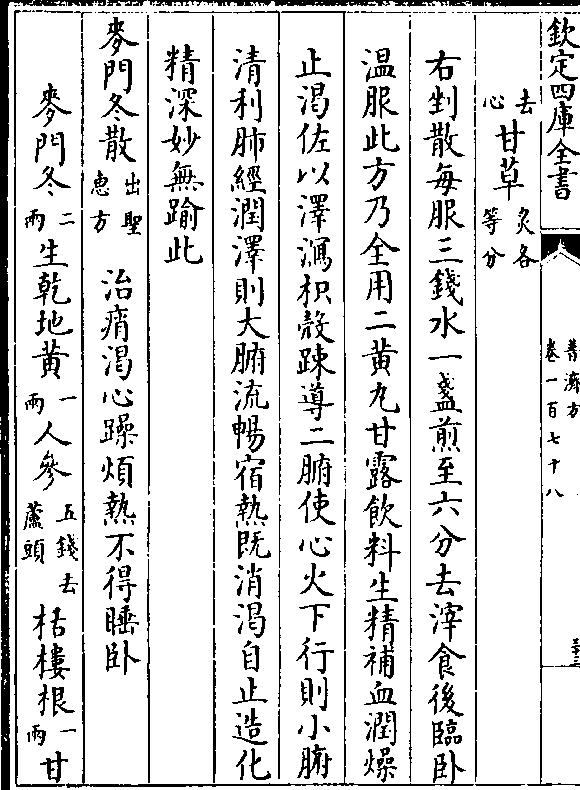 欽定四庫全書
普濟方
卷一百七十八
去心甘草炙各等分
右剉散每服三錢水一盞煎至六分去滓食後臨卧
温服此方乃全用二黄丸甘露飲料生精補血潤燥
止渴佐以澤瀉枳殼踈導二腑使心火下行則小腑
清利肺經潤澤則大腑流暢宿熱既消渴自止造化
精深妙無踰此
麥門冬散出聖惠方 治痟渴心躁煩熱不得睡卧
麥門冬二兩生乾地黄一兩人參五錢去蘆頭枯樓根一兩甘